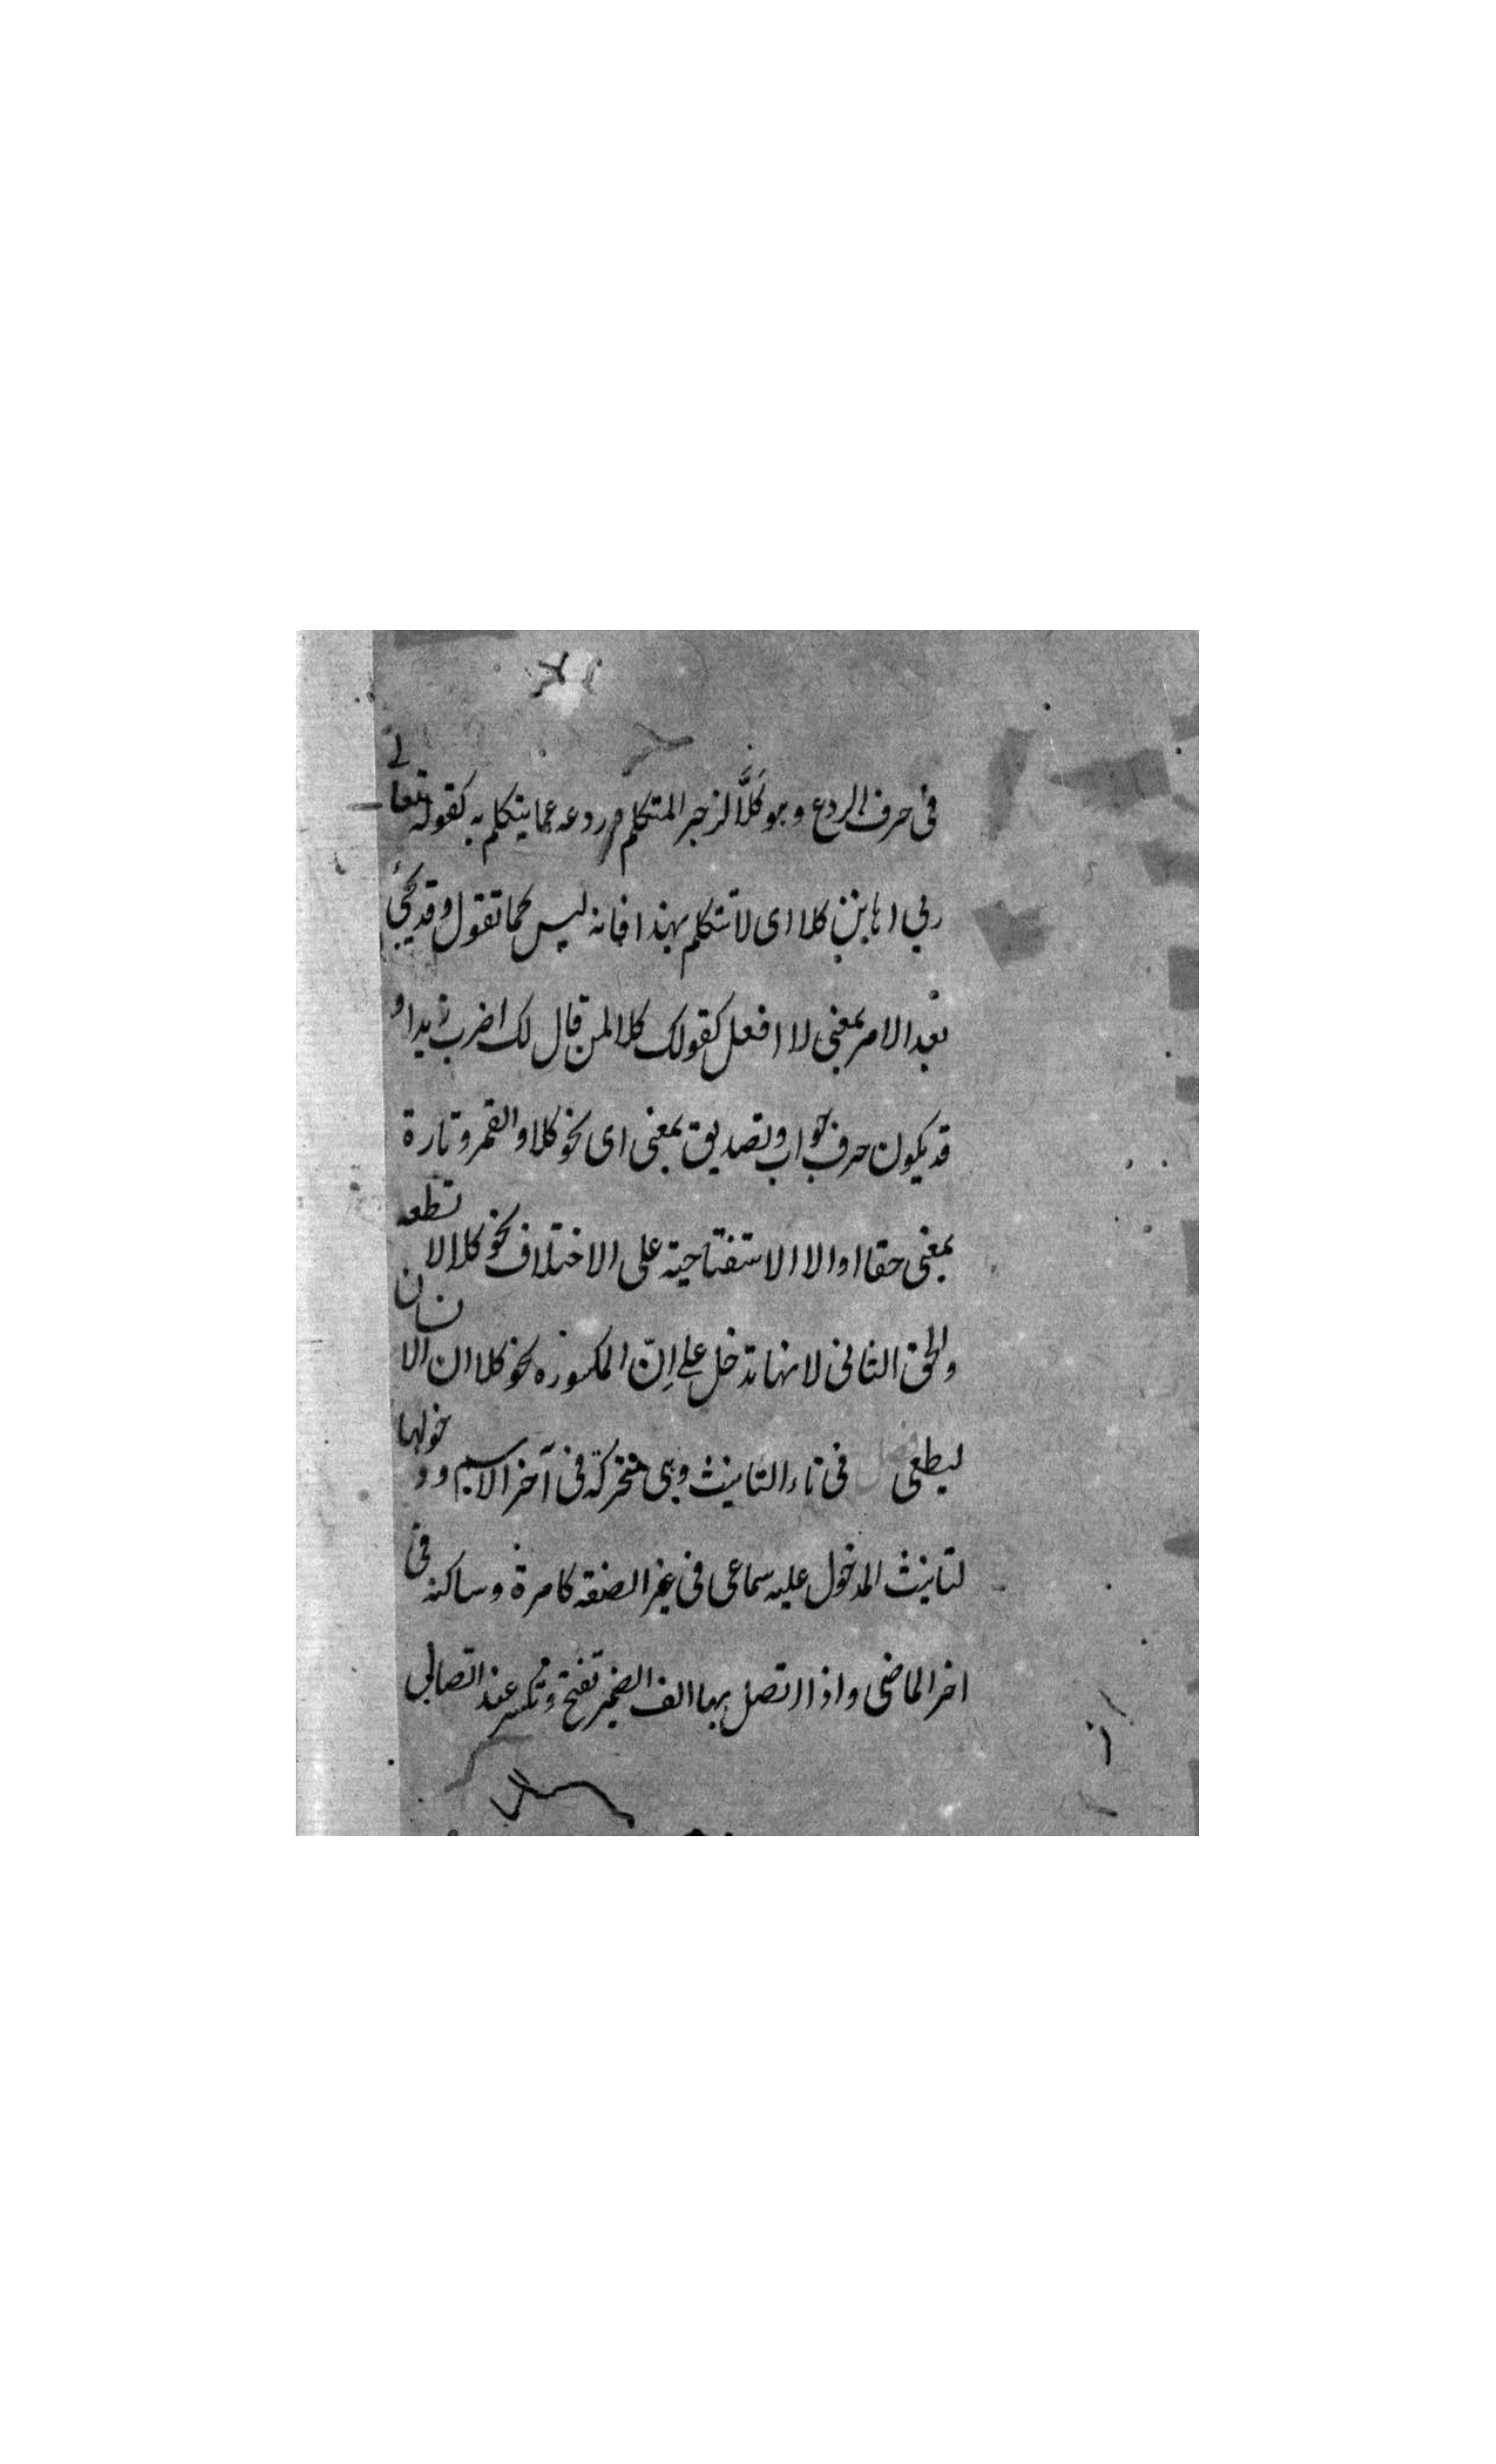 فى حرف الردع وهو كَلَّا لزجر المتكلم وردعه عما يتكلم به كقوله تعالے
ربي اهانن كلا اى لا تتكلم بهذا فانه ليس كما تقول وقد يجئ
بعد الامر بمعنى لا افعل كقولك كلا لمن قال لك اضرب زيدا و
قد يكون حرف جواب وتصديق بمعنى اى نحو كلا والقمر وتارة
بمعنى حقا او الا الاستفتاحية على الاختلاف نحو كلا لا تطعه
والحق الثانى لانها تدخل على اِنّ المكسورة نحو كلا ان الانسان
ليطغى فى تاء التانيث وهى متحركة فى آخر الاسم ودخولها
لتانيث المدخول عليه سماعى فى غير الصفة كامرة وساكنة فى
اخر الماضى واذا اتصل بها الف الضمير تفتح وتكسر عند اتصالها